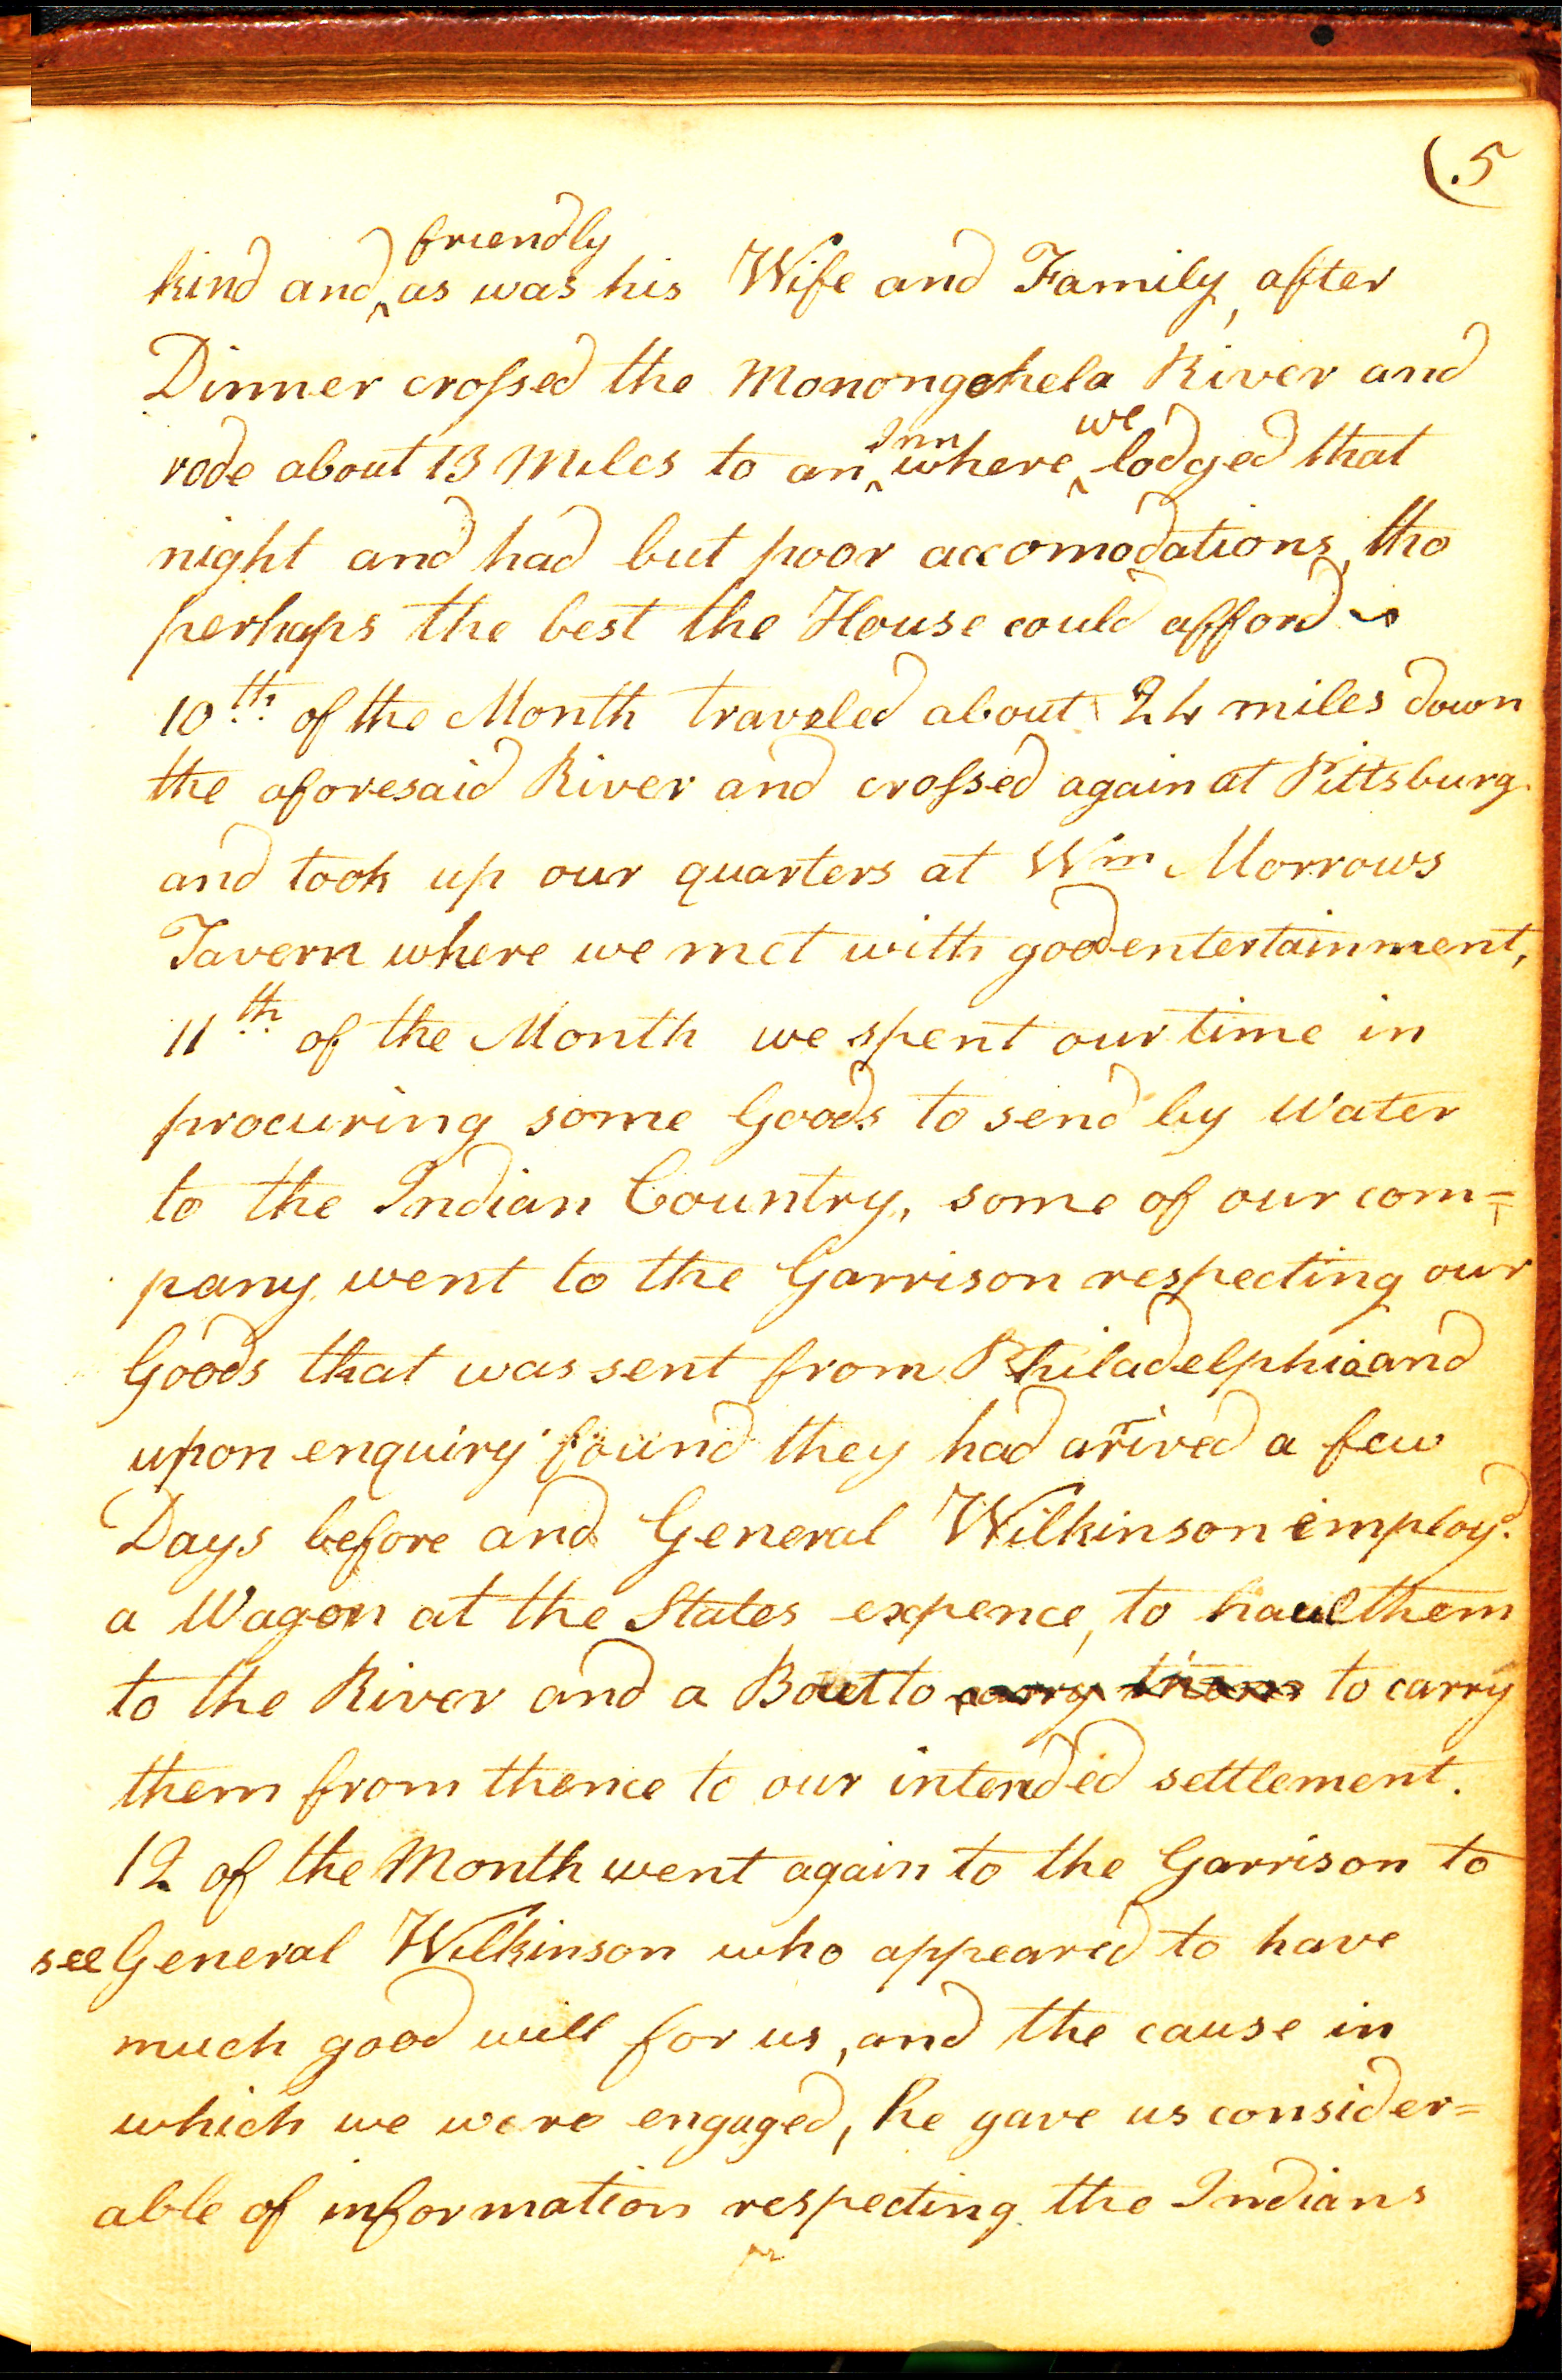 (.5
kind and ^friendly as was his Wife and Family, after
Dinner crossed the Monongehela River and
rode about 13 Miles to an ^Inn where ^we lodged that
night and had but poor accomodations, tho
perhaps the best the House could afford ~
10th of the Month traveled about 24 miles down
the aforesaid River and crossed again at Pittsburg.
and took up our quarters at Wm Morrows
Tavern where we met with good entertainment,
11th of the Month we spent our time in
procuring some Goods to send by Water
to the Indian Country, some of our com=
pany went to the Garrison respecting our
Goods that was sent from Philadelphia and
upon enquiry found they had arived a few
Days before and General Wilkinson employd.
a Wagon at the States expence, to haul them
to the River and a Boat to carry them to carry
them from thence to our intended settlement.
12 of the Month went again to the Garrison to
see General Wilkinson who appeared to have
much good will for us, and the cause in
which we were engaged, he gave us consider=
able of information respecting the Indians